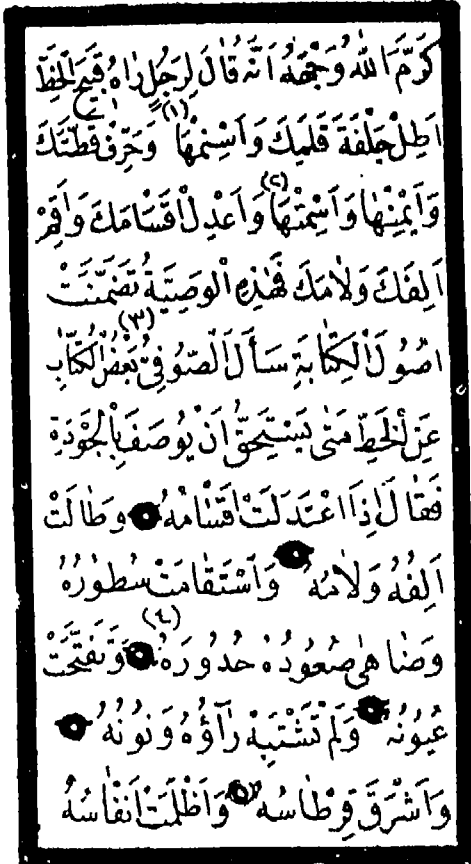 كَرَّمَ اللّٰهُ وَجْهَهُ اَنَّهُ قَالَ لِرَجُلٍ رَاٰهُ قَبِيحَ الْخَطِّ
اَطِلْ جِلْفَةَ قَلَمِكَ وَاَسْمِنْهَا (١) وَحَرِّفْ قَطَّتَكَ
وَاَيْمِنْهَا وَاَسْمِتْهَا (٢) وَاَعْدِلْ اَقْسَامَكَ وَاَقِمْ
اَلِفَكَ وَلَامَكَ فَهٰذِهِ الْوَصِيَّةُ تَضَمَّنَتْ
اُصُولَ الْكِتَابَةِ (٣) سَأَلَ الصُّوفِيَّ بَعْضُ الْكُتَّابِ
عَنِ الْخَطِّ مَتٰى يَسْتَحِقُّ اَنْ يُوصَفَ بِالْجَوْدَةِ
فَقَالَ اِذَا اعْتَدَلَتْ اَقْسَامُهُ وَطَالَتْ
اَلِفُهُ وَلَامُهُ وَاَسْتَقَامَتْ سُطُورُهُ
وَضَاهٰى صُعُودُهُ حُدُورَهُ (٤) وَتَفَتَّحَتْ
عُيُونُهُ وَلَمْ تَشْتَبِهْ رَآؤُهُ وَنُونُهُ
وَاَشْرَقَ قِرْطَاسُهُ (٥) وَاَظْلَمَتْ اَنْفَاسُهُ